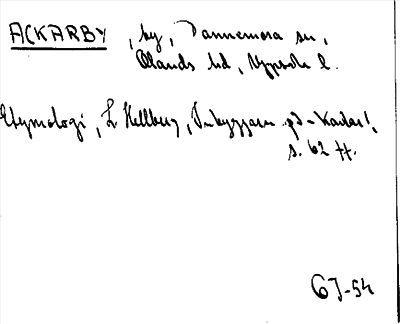 ACKARBY, by, Dannemora sn,
Olands hd, Uppsala l.
Etymologi, L Hellberg, Inbyggarn. på -karlar,
s. 62 ff.
GJ-54